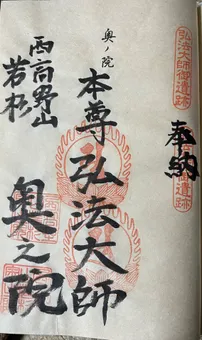 弘法大師御遺跡
奉納
奥ノ院
本尊弘法大師
奥之院
西高野山
若杉